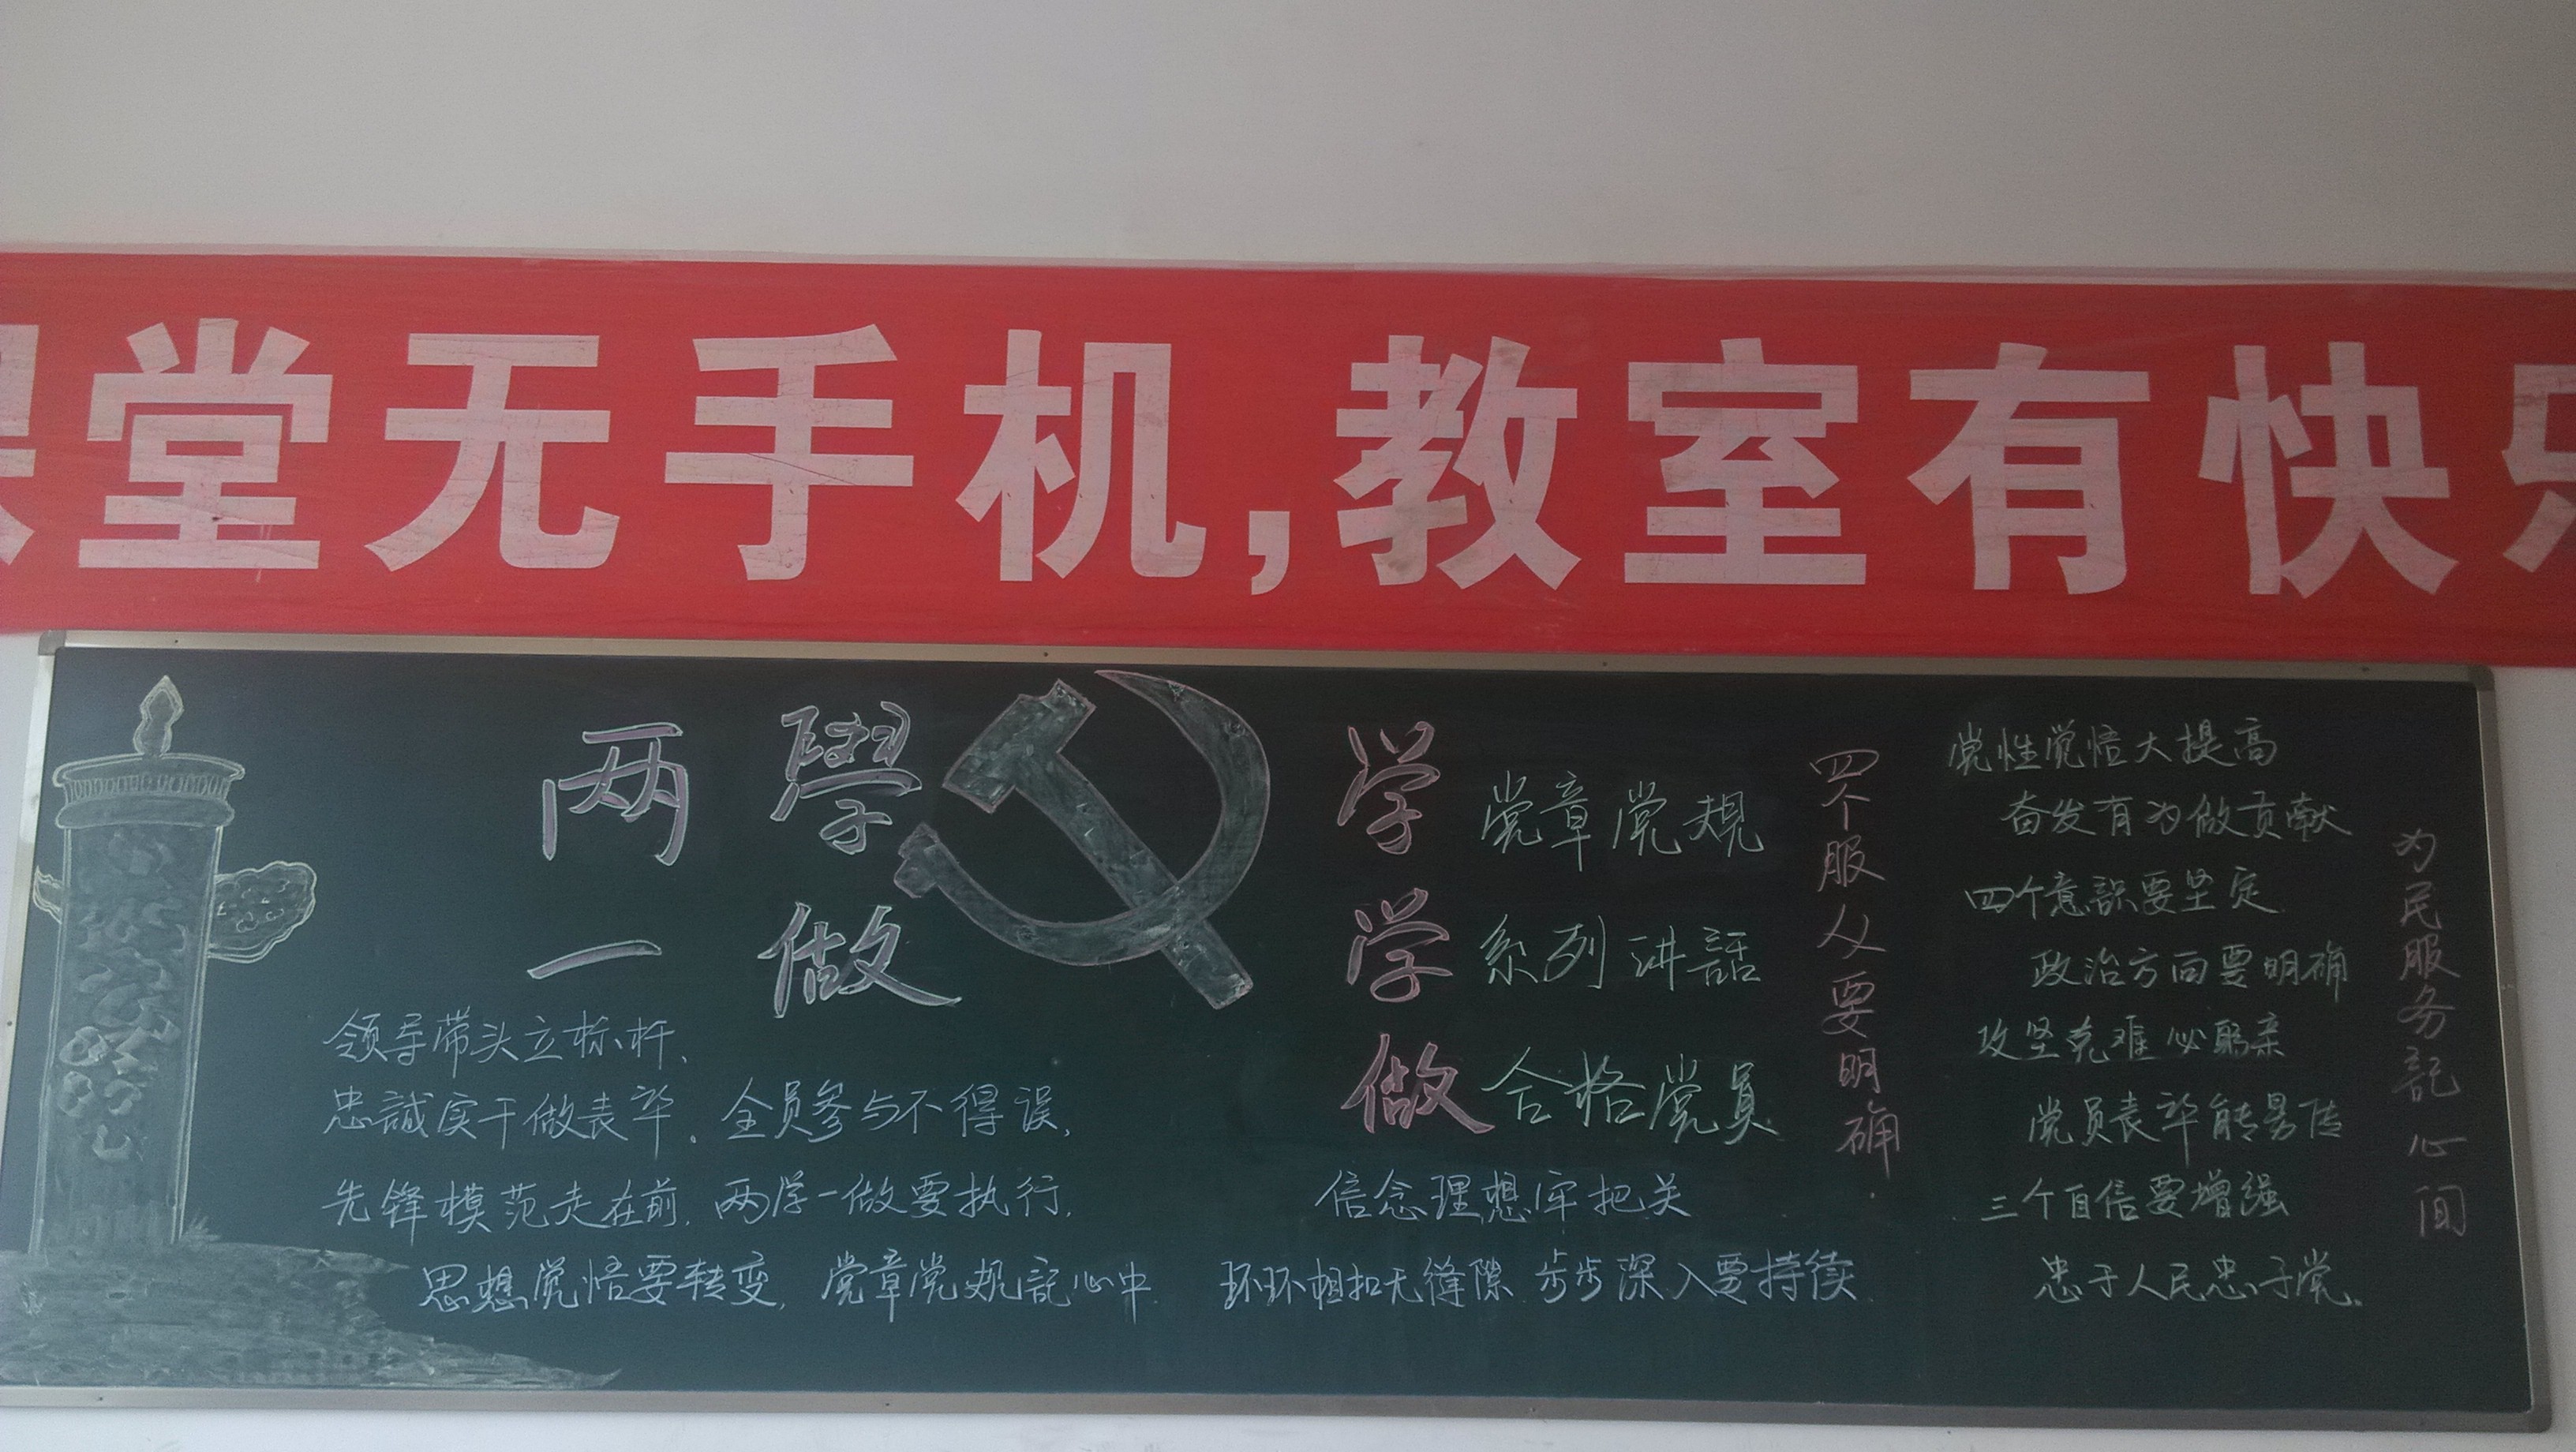 课堂无手机,教室有快乐
两學
一做
领导带头立标杆、
忠誠实干做表率．全员参与不得误．
先锋模范走在前．两学一做要执行．
思想党悟要转变．党章党规記心中
学党章党规
学系列讲話
做合格党员
信念理想牢把关
环环相扣无缝隙 步步深入要持续
四个服从要明确．
党性党悟大提高
奋发有为做贡献
四个意識要坚定
政治方向要明确
攻坚克难必躬亲
党员表率能易传
三个自信要增强
忠于人民忠于党．
为民服务記心间